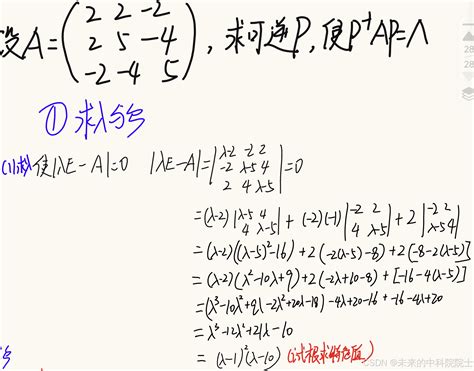 设A=(2 2 -2
2 5 -4
-2 -4 5), 求可逆P, 使P⁻¹AP=Λ
① 求λ与ξ
(1)求λ 使|λE-A|=0 |λE-A|=|λ-2 -2 2
-2 λ-5 4
2 4 λ-5|=0
=(λ-2)|λ-5 4
4 λ-5| + (-2)(-1)|-2 2
4 λ-5| + 2|-2 2
λ-5 4|
=(λ-2)((λ-5)²-16) + 2(-2(λ-5)-8) + 2[-8-2(λ-5)]
=(λ-2)(λ²-10λ+9) + 2(-2λ+10-8) + [-16-4(λ-5)]
=(λ³-10λ²+9λ-2λ²+20λ-18) -4λ+20-16 + -16-4λ+20
=λ³-12λ²+21λ-10
=(λ-1)²(λ-10) (试根求特征值)
CSDN @未来的中科院院士
28
28